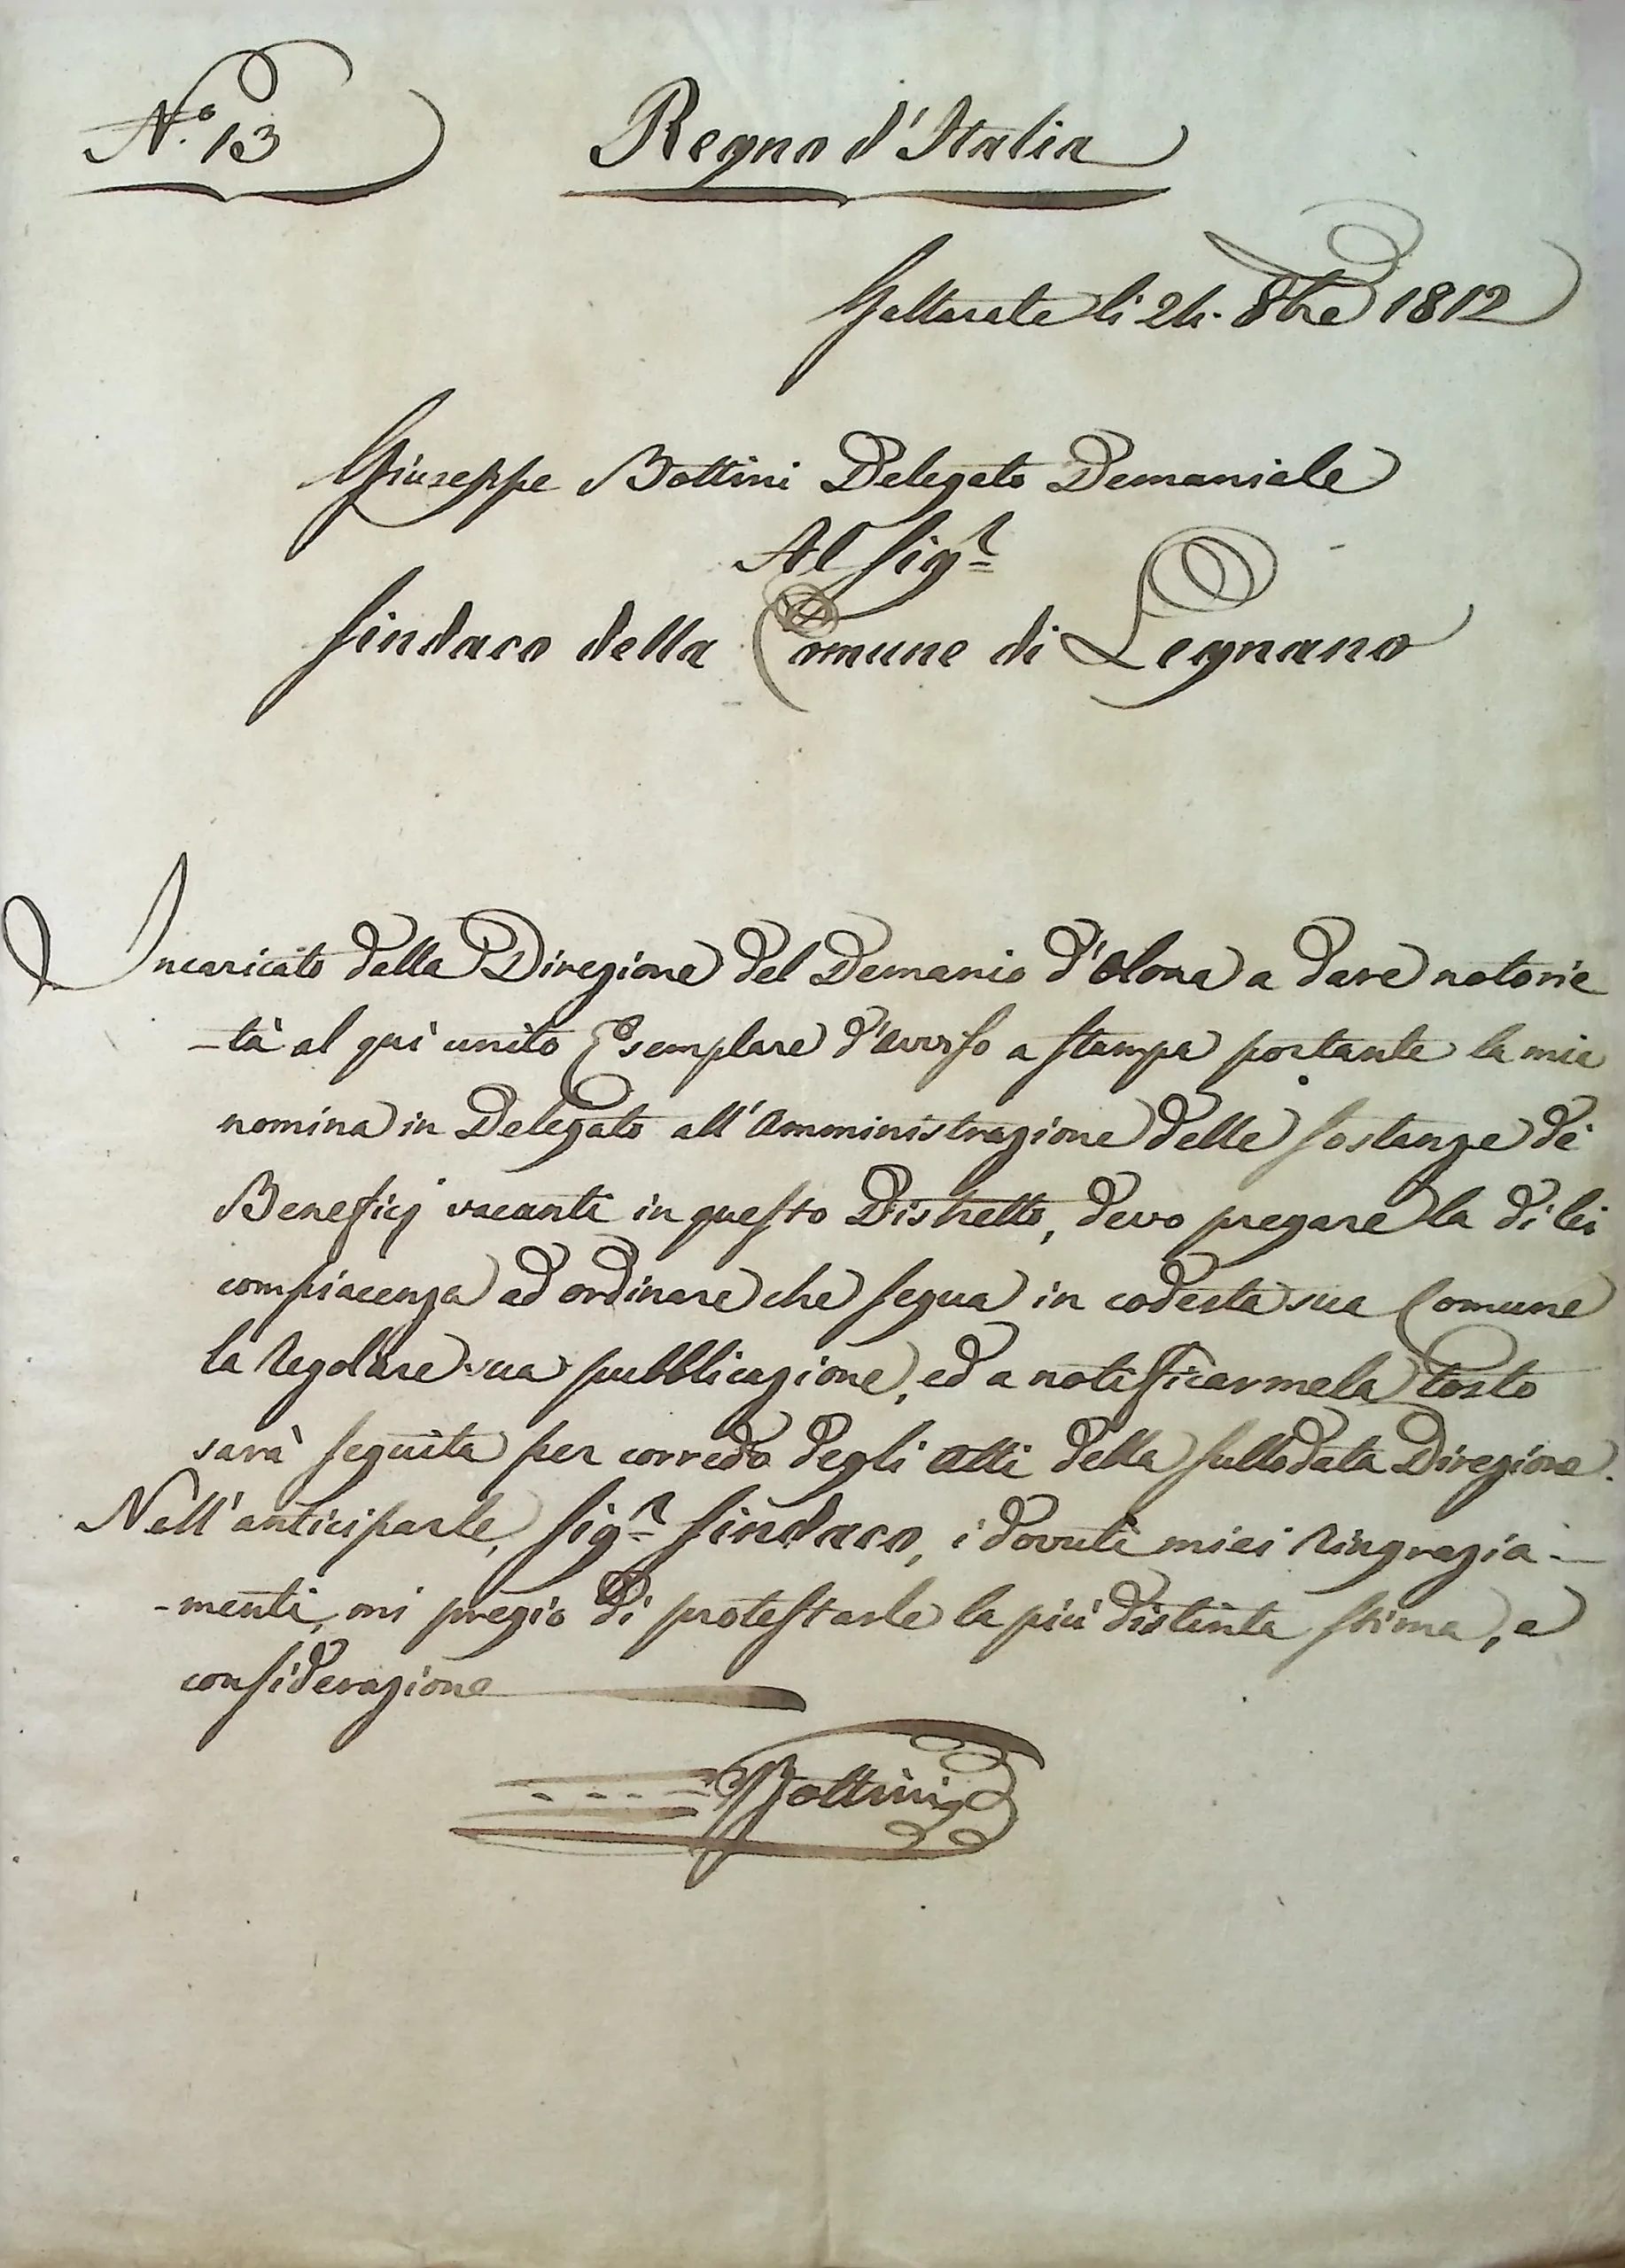 N.º 13
Regno d'Italia
Gallarate li 24. 8bre 1812
Giuseppe Bottini Delegato Demaniale
Al Sig.r
Sindaco della Comune di Legnano
Incaricato dalla Direzione del Demanio d'Olona a dare notorie
-tà al quì unito Esemplare d'Avviso a stampa portante la mia
nomina in Delegato all'Amministrazione delle sostanze de'
Beneficj vacanti in questo Distretto, devo pregare la di lei
compiacenza ad ordinare che segua in codesta sua Comune
la regolare sua pubblicazione, ed a notificarmela tosto
sarà seguita per corredo degli Atti della sullodata Direzione.
Nell'anticiparle, Sig.r Sindaco, i dovuti miei ringrazia-
-menti, mi pregio di protestarle la più distinta stima, e
considerazione
Bottini